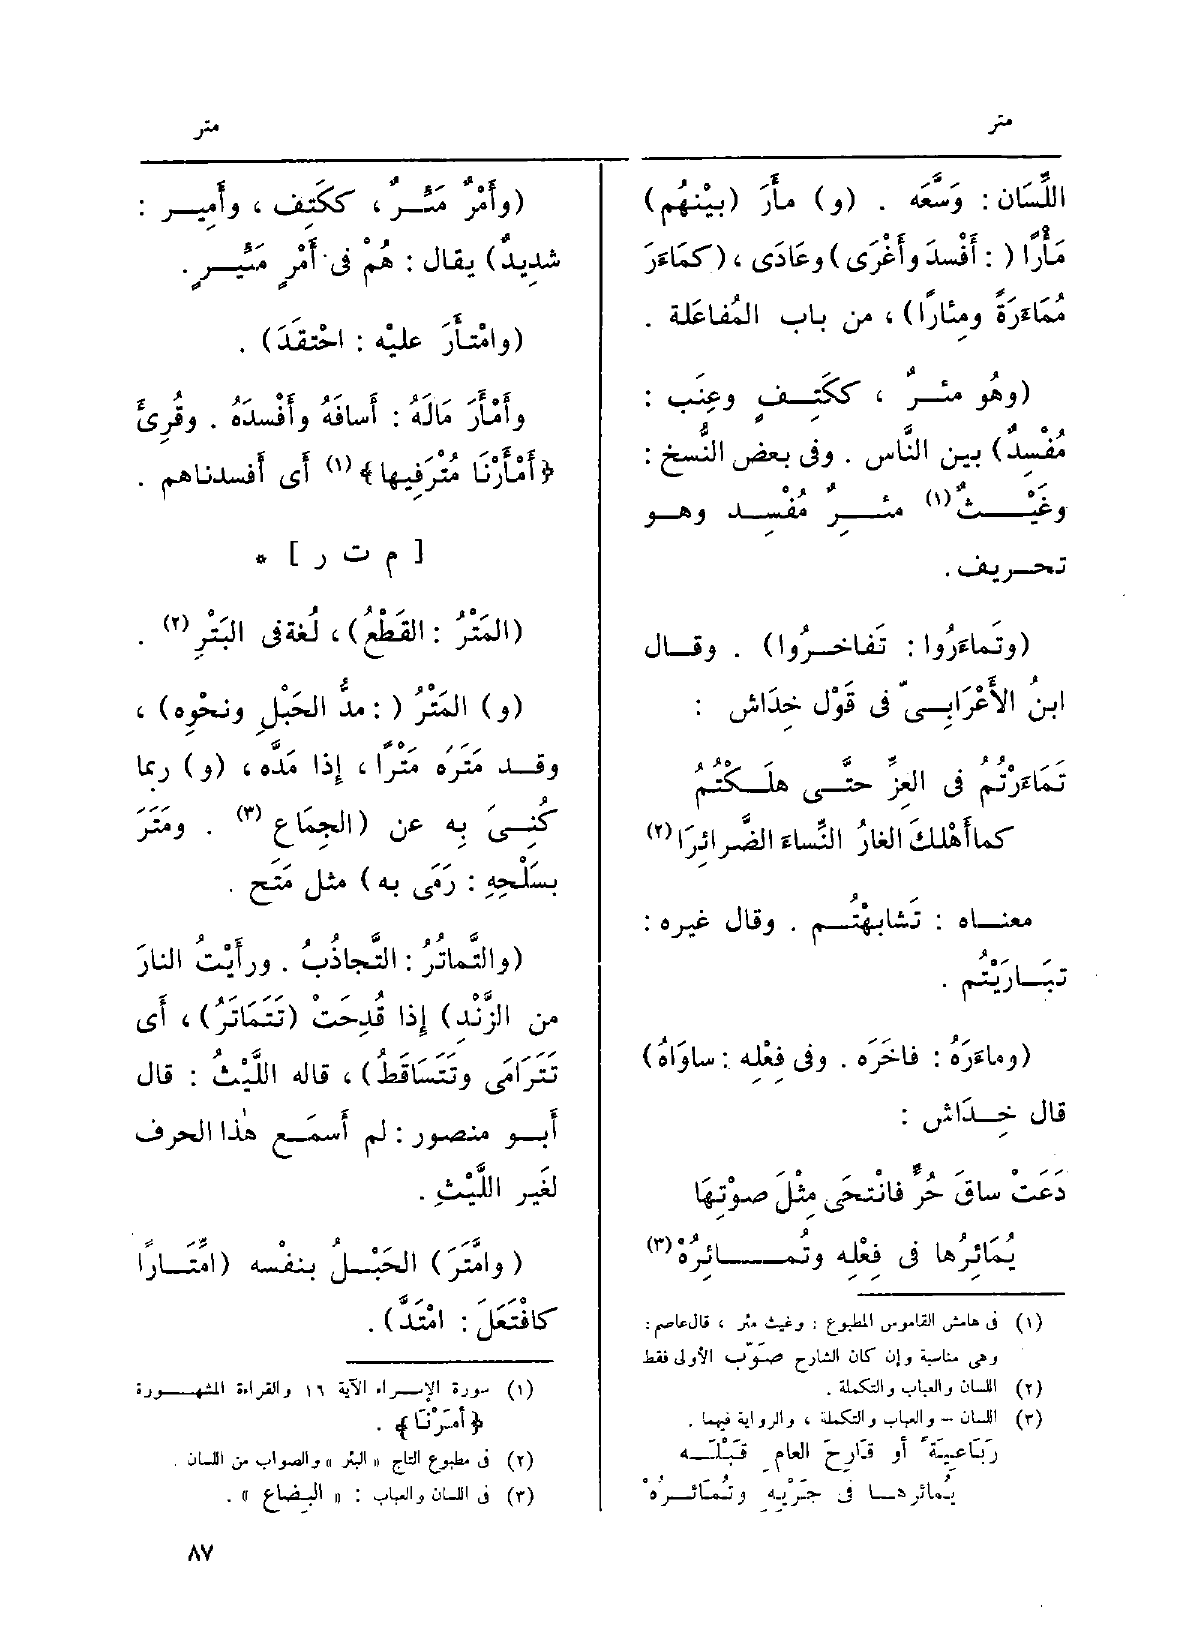 متر
متر
اللِّسَان: وَسَّعَه . (و) مأَرَ (بيْنهُم)
مَأْرًا (: أَفْسدَ وأَغْرَى) وعَادَى ، (كمَاءَرَ
مُمَاءَرَةً ومِئارًا) ، من باب المُفاعَلة .
(وهُو مئِرٌ ، ككَتِفٍ وعِنَب :
مُفْسِدٌ) بين النَّاس . وفى بعض النُّسخ :
وغَيْثٌ (١) مئِرٌ مُفْسِد وهو
تحريف .
(وتَماءَرُوا : تَفاخرُوا) . وقال
ابنُ الأَعْرَابىّ فى قَوْل خِدَاش :
تَمَاءَرْتُم فى العِزِّ حتَّى هلَكْتُمُ
كما أَهْلكَ الغارُ النِّساءَ الضَّرائِرَا (٢)
معناه : تَشابهْتُم . وقال غيره :
تبَارَيْتُم .
(وماءَرَهُ : فاخَرَه . وفى فِعْلِه : ساوَاهُ)
قال خِدَاش :
دَعَتْ ساقَ حُرٍّ فانْتحَى مِثْلَ صوْتِهَا
يُمَائِرُها فى فِعْلِه وتُمائِرُهْ (٣)
(١) فى هامش القاموس المطبوع : وغيث مئر ، قال عاصم :
وهى مناسبة وإن كان الشارح صَوَّب الأولى فقط
(٢) اللسان والعباب والتكملة .
(٣) اللسان – والعباب والتكملة ، والرواية فيهما .
رَبَاعِيَةً أو قَارِحَ العامِ قَبْلَه
يُمائرها فى جَرْيِهِ وتُمَائرُهْ
(وأَمْرٌ مَئِرٌ ، ككَتِف ، وأَمِير :
شدِيدٌ) يقال : هُمْ فى أَمْرٍ مَئِيرٍ .
(وامْتأَرَ عليْه : احْتقَدَ) .
وأَمْأَرَ مَالَهُ : أَسافَهُ وأَفْسدَهُ . وقُرِئَ
﴿أَمْأَرْنَا مُتْرَفِيها﴾ (١) أَى أَفسدناهم .
[ م ت ر ] *
(المَتْرُ : القَطْعُ) ، لُغة فى البَتْرِ (٢) .
(و) المَتْرُ (: مدُّ الحَبْلِ ونحْوِه) ،
وقد مَتَرَه مَتْرًا ، إِذا مَدَّه ، (و) ربما
كُنِىَ بِه عن (الجِمَاع (٣) . ومَتَرَ
بسَلْحِهِ : رَمَى به) مثل مَتَح .
(والتَّماتُرُ : التَّجاذُبُ . ورأَيْتُ النارَ
من الزَّنْدِ) إذا قُدِحَتْ (تَتَمَاتَرُ) ، أَى
تَتَرَامَى وتَتَسَاقَطُ) ، قاله اللَّيْثُ : قال
أَبو منصور : لم أَسمَع هٰذا الحرف
لغَير اللَّيْثِ .
(وامَّتَرَ) الحَبْلُ بنفْسه (امِّتَارًا
كافْتَعَلَ : امْتَدَّ) .
(١) سورة الإسراء الآية ١٦ والقراءة المشهورة
﴿أَمَرْنَا﴾ .
(٢) فى مطبوع التاج « البئر » والصواب من اللسان .
(٣) فى اللسان والعباب : « البِضَاع » .
٨٧